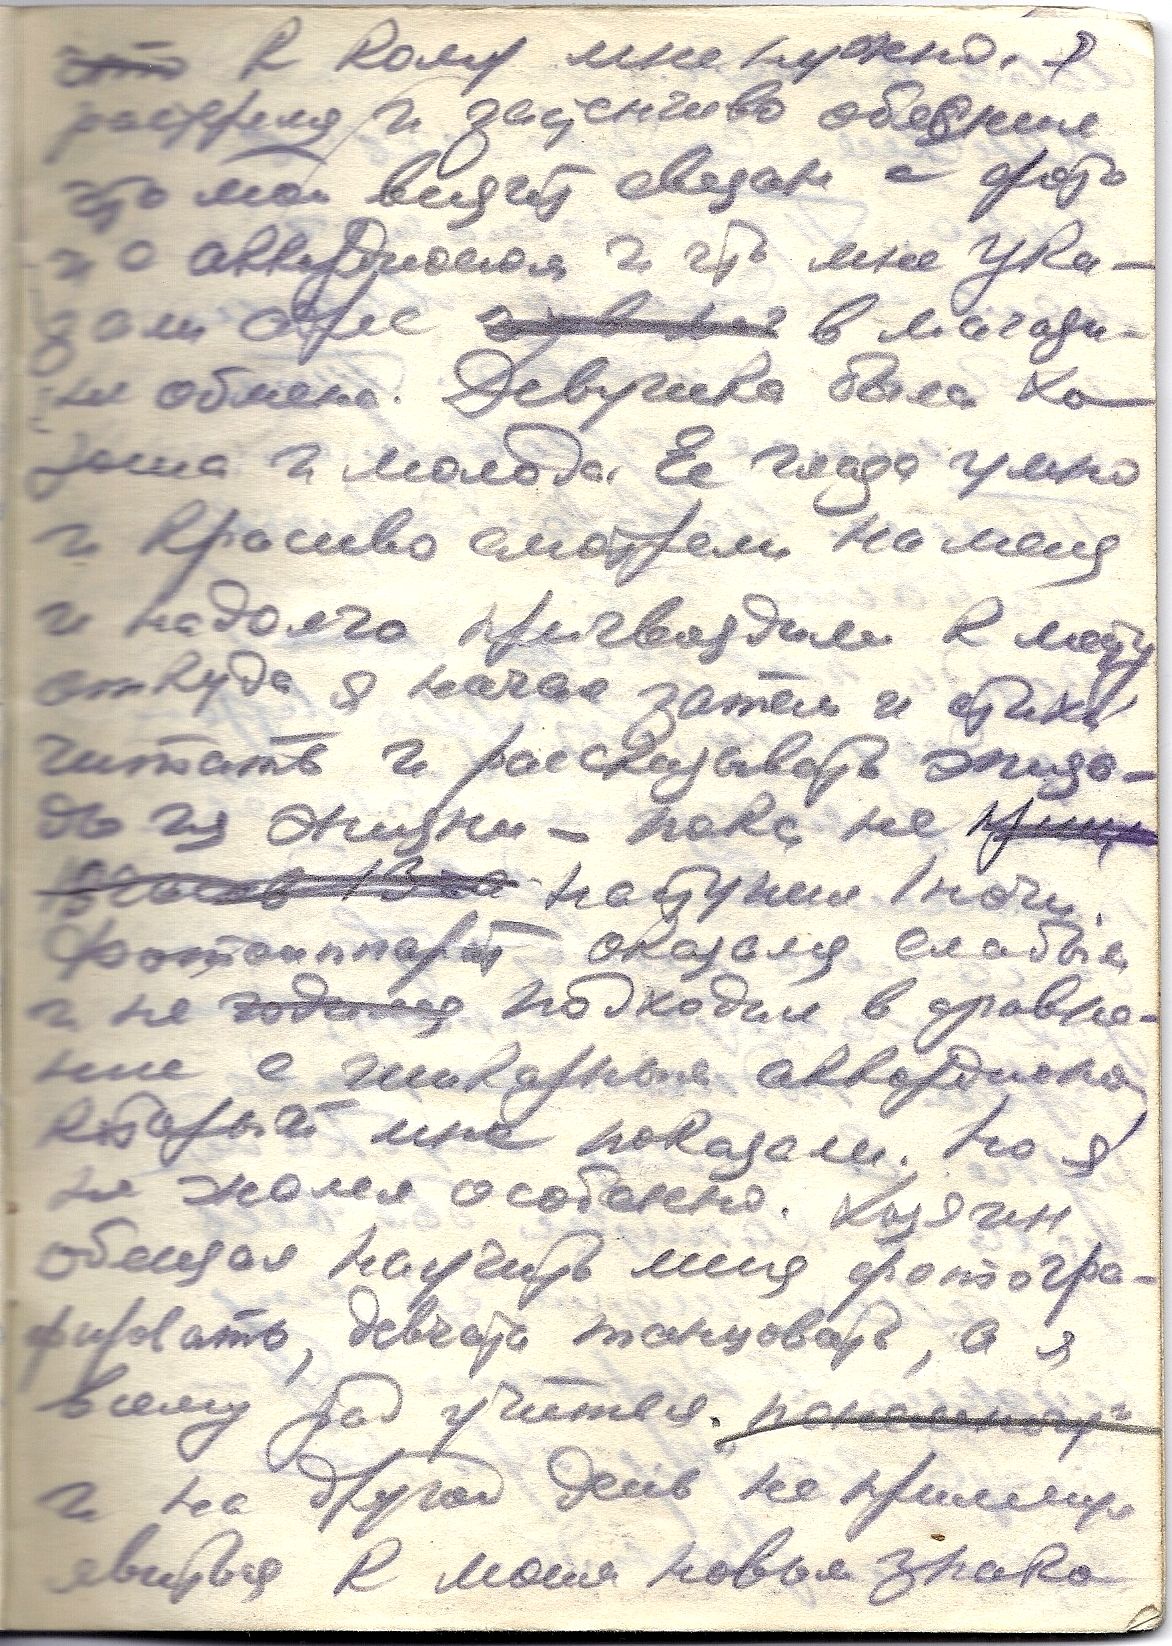 к кому мне нужно. Я
растерялся и застенчиво объяснил
что мой визит связан с фото
и с аккордионом и что мне ука-
зали адрес в магази-
не обмена. Девушка была хо-
роша и молода. Ее глаза умно
и красиво смотрели на меня
и надолго пригвоздили к месту
откуда я начал затем и стихи
читать и рассказывать эпизо-
ды из жизни – пока не
наступил 1 ночи.
Фотоаппарат оказался слабым
и не подходил в сравне-
ние с шикарным аккордионом
который мне показали. Но я
не жалел особенно. Хозяин
обещал научить меня фотогра-
фировать, девчата танцовать, а я
всему рад учиться. понемногу
и на другой день не преминул
явиться к моим новым знако